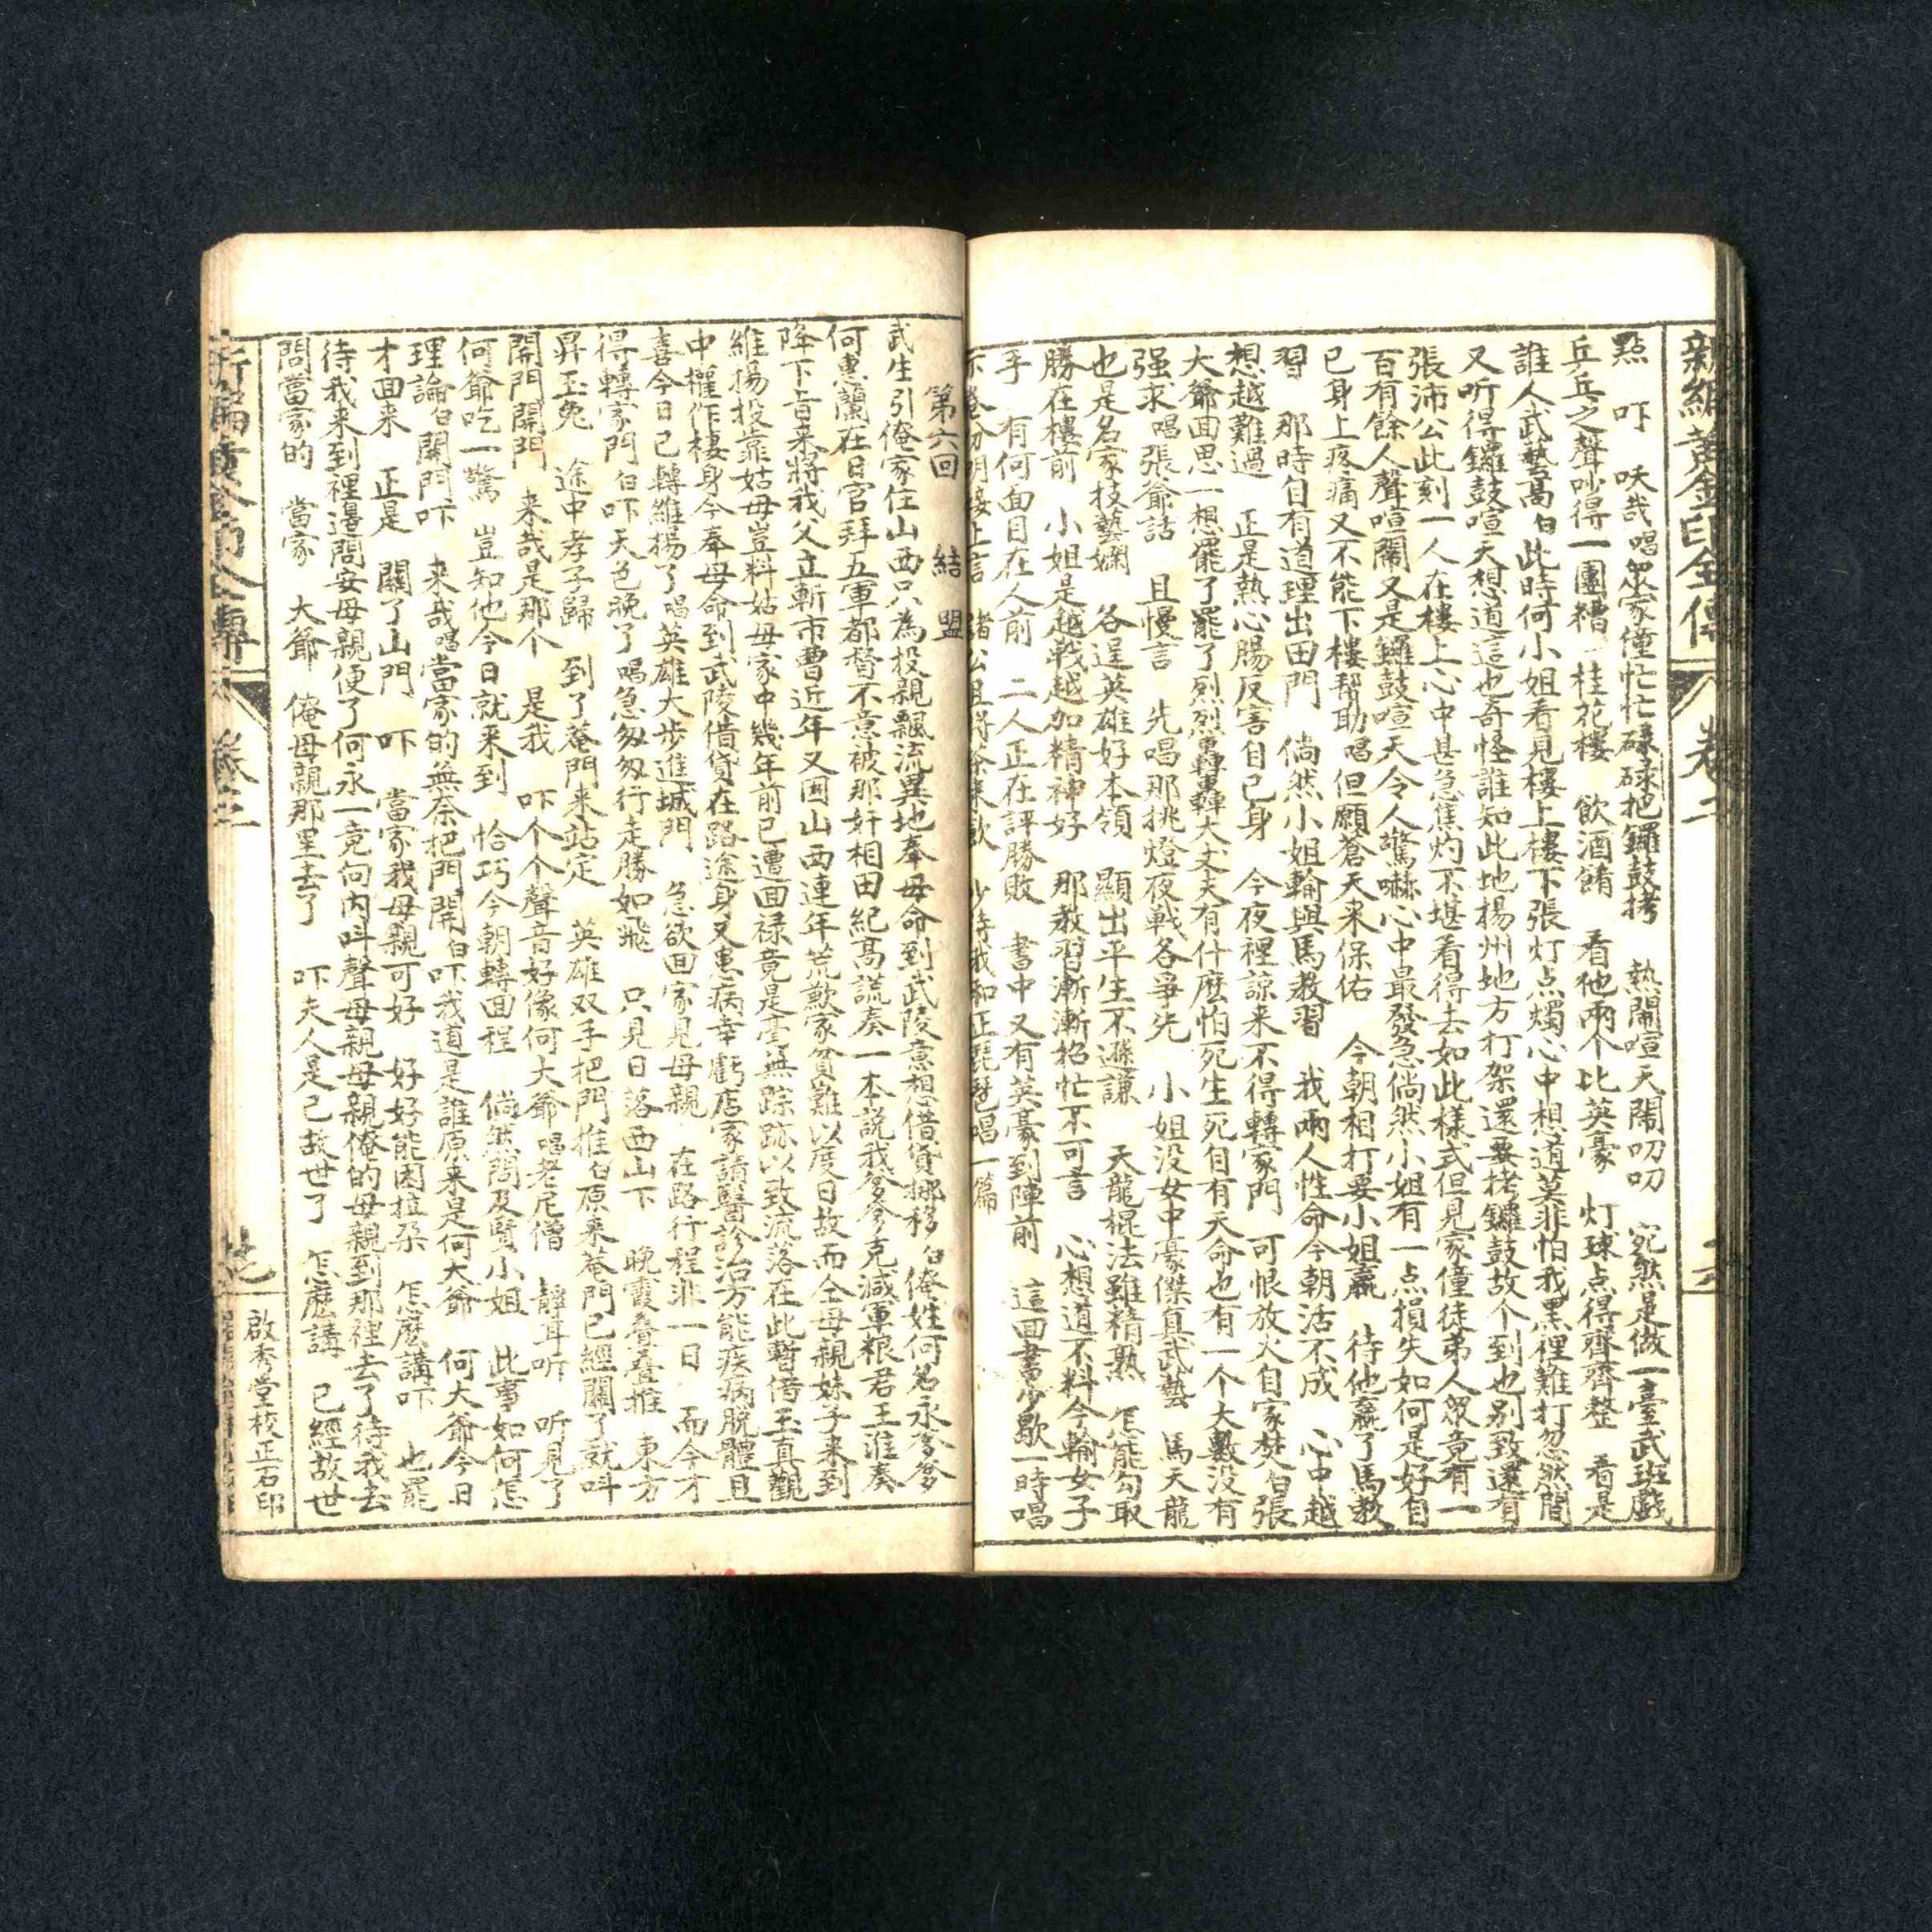 新編黃金印全傳
卷二
點　吓　吙哉唱眾家僮忙忙碌碌把鑼鼓拷　熱鬧喧天鬧叨叨　宛然是做一臺武班戲
乒乓之聲吵得一團糟　桂花樓　飲酒餚　看他兩个比英豪　灯球点得齊齊整　看是
誰人武藝高白此時何小姐看見樓上樓下張灯点燭心中想道莫非怕我黑裡難打忽然間
又听得鑼鼓喧天想道這也奇怪誰知此地揚州地方打架還要拷鑼鼓故个到也别致還有
張沛公此刻一人在樓上心中甚急焦灼不堪看得去如此樣式但見家僮徒弟人眾竟有一
百有餘人聲喧鬧又是鑼鼓喧天令人驚嚇心中最發急倘然小姐有一点損失如何是好自
己身上疼痛又不能下樓帮助唱但願蒼天來保佑　今朝相打要小姐贏　待他贏了馬教
習　那時自有道理出田門　倘然小姐輸與馬教習　我兩人性命今朝活不成　心中越
想越難過　正是熱心腸反害自己身　今夜裡諒来不得轉家門　可恨放火自家焚白張
大爺面思一想罷了罷了烈烈轟轟大丈夫有什麽怕死生死自有天命也有一个大數没有
强求唱張爺話　且慢言　先唱那挑燈夜戰各爭先　小姐没女中豪傑真武藝　馬天龍
也是名家技藝嫻　各逞英雄好本領　顯出平生不遜謙　天龍棍法雖精熟　怎能勾取
勝在樓前　小姐是越戰越加精神好　那教習漸漸招忙不可言　心想道不料今輪女子
手　有何面目在人前　二人正在評勝敗　書中又有英豪到陣前　這回書少歇一時唱
第六回　結　盟
武生引俺家住山西只為投親飄流異地奉母命到武陵意想借貸挪移白俺姓何名永爹爹
何惠蘭在日官拜五軍都督不意被那奸相田紀高謊奏一本説我爹爹克減軍粮君王准奏
降下旨来將我父立斬市曹近年又因山西連年荒歉家貧難以度日故而仝母親妹子来到
維揚投靠姑母豈料姑母家中幾年前已遭回禄竟是毫無踪跡以致流落在此暫借玉真觀
中權作棲身今奉母命到武陵借貸在路途身又患病幸虧店家請醫診治方能疾病脫體且
喜今日已轉維揚了唱英雄大步進城門　急欲回家見母親　在路行程非一日　而今才
得轉家門白吓天色晚了唱急匆匆行走勝如飛　只見日落西山下　晚霞叠叠推　東方
昇玉兔　途中孝子歸　到了菴門来站定　英雄双手把門推白原来菴門已經關了就呌
開門開門　来哉是那个　是我　吓个个聲音好像何大爺唱老尼僧　靜耳听　听見了
何爺吃一驚　豈知他今日就来到　恰巧今朝轉回程　倘然問及賢小姐　此事如何怎
理論白開門吓　来哉唱當家的無奈把門開白吓我道是誰原来是何大爺　何大爺今日
才面来　正是　關了山門　吓　當家我母親可好　好好能困拉朶　怎麽講吓　也罷
待我来到裡邊問安母親便了何永一竟向内呌聲母親母親俺的母親到那裡去了待我去
問當家的　當家　大爺　俺母親那里去了　吓夫人是已故世了　怎麽講　已經故世
啟秀堂校正石印